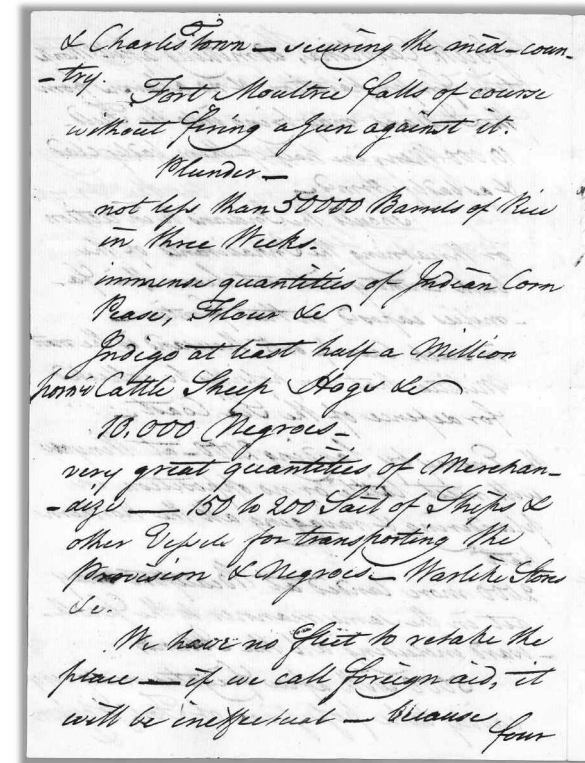 & Charlestown — securing the mid-coun-
-try.
Fort Moultrie falls of course
without firing a Gun against it.
Plunder —
not less than 50000 Barrels of Rice
in three Weeks.
immense quantities of Indian Corn
Pease, Flour &c
Indigo at least half a Million
horses Cattle Sheep Hogs &c
10,000 Negroes —
very great quantities of Merchan-
-dize — 150 to 200 Sail of Ships &
other Vessels for transporting the
Provision & Negroes — Warlike Stores
&c.
We have no fleet to retake the
place — if we call foreign aid, it
will be ineffectual — because
four